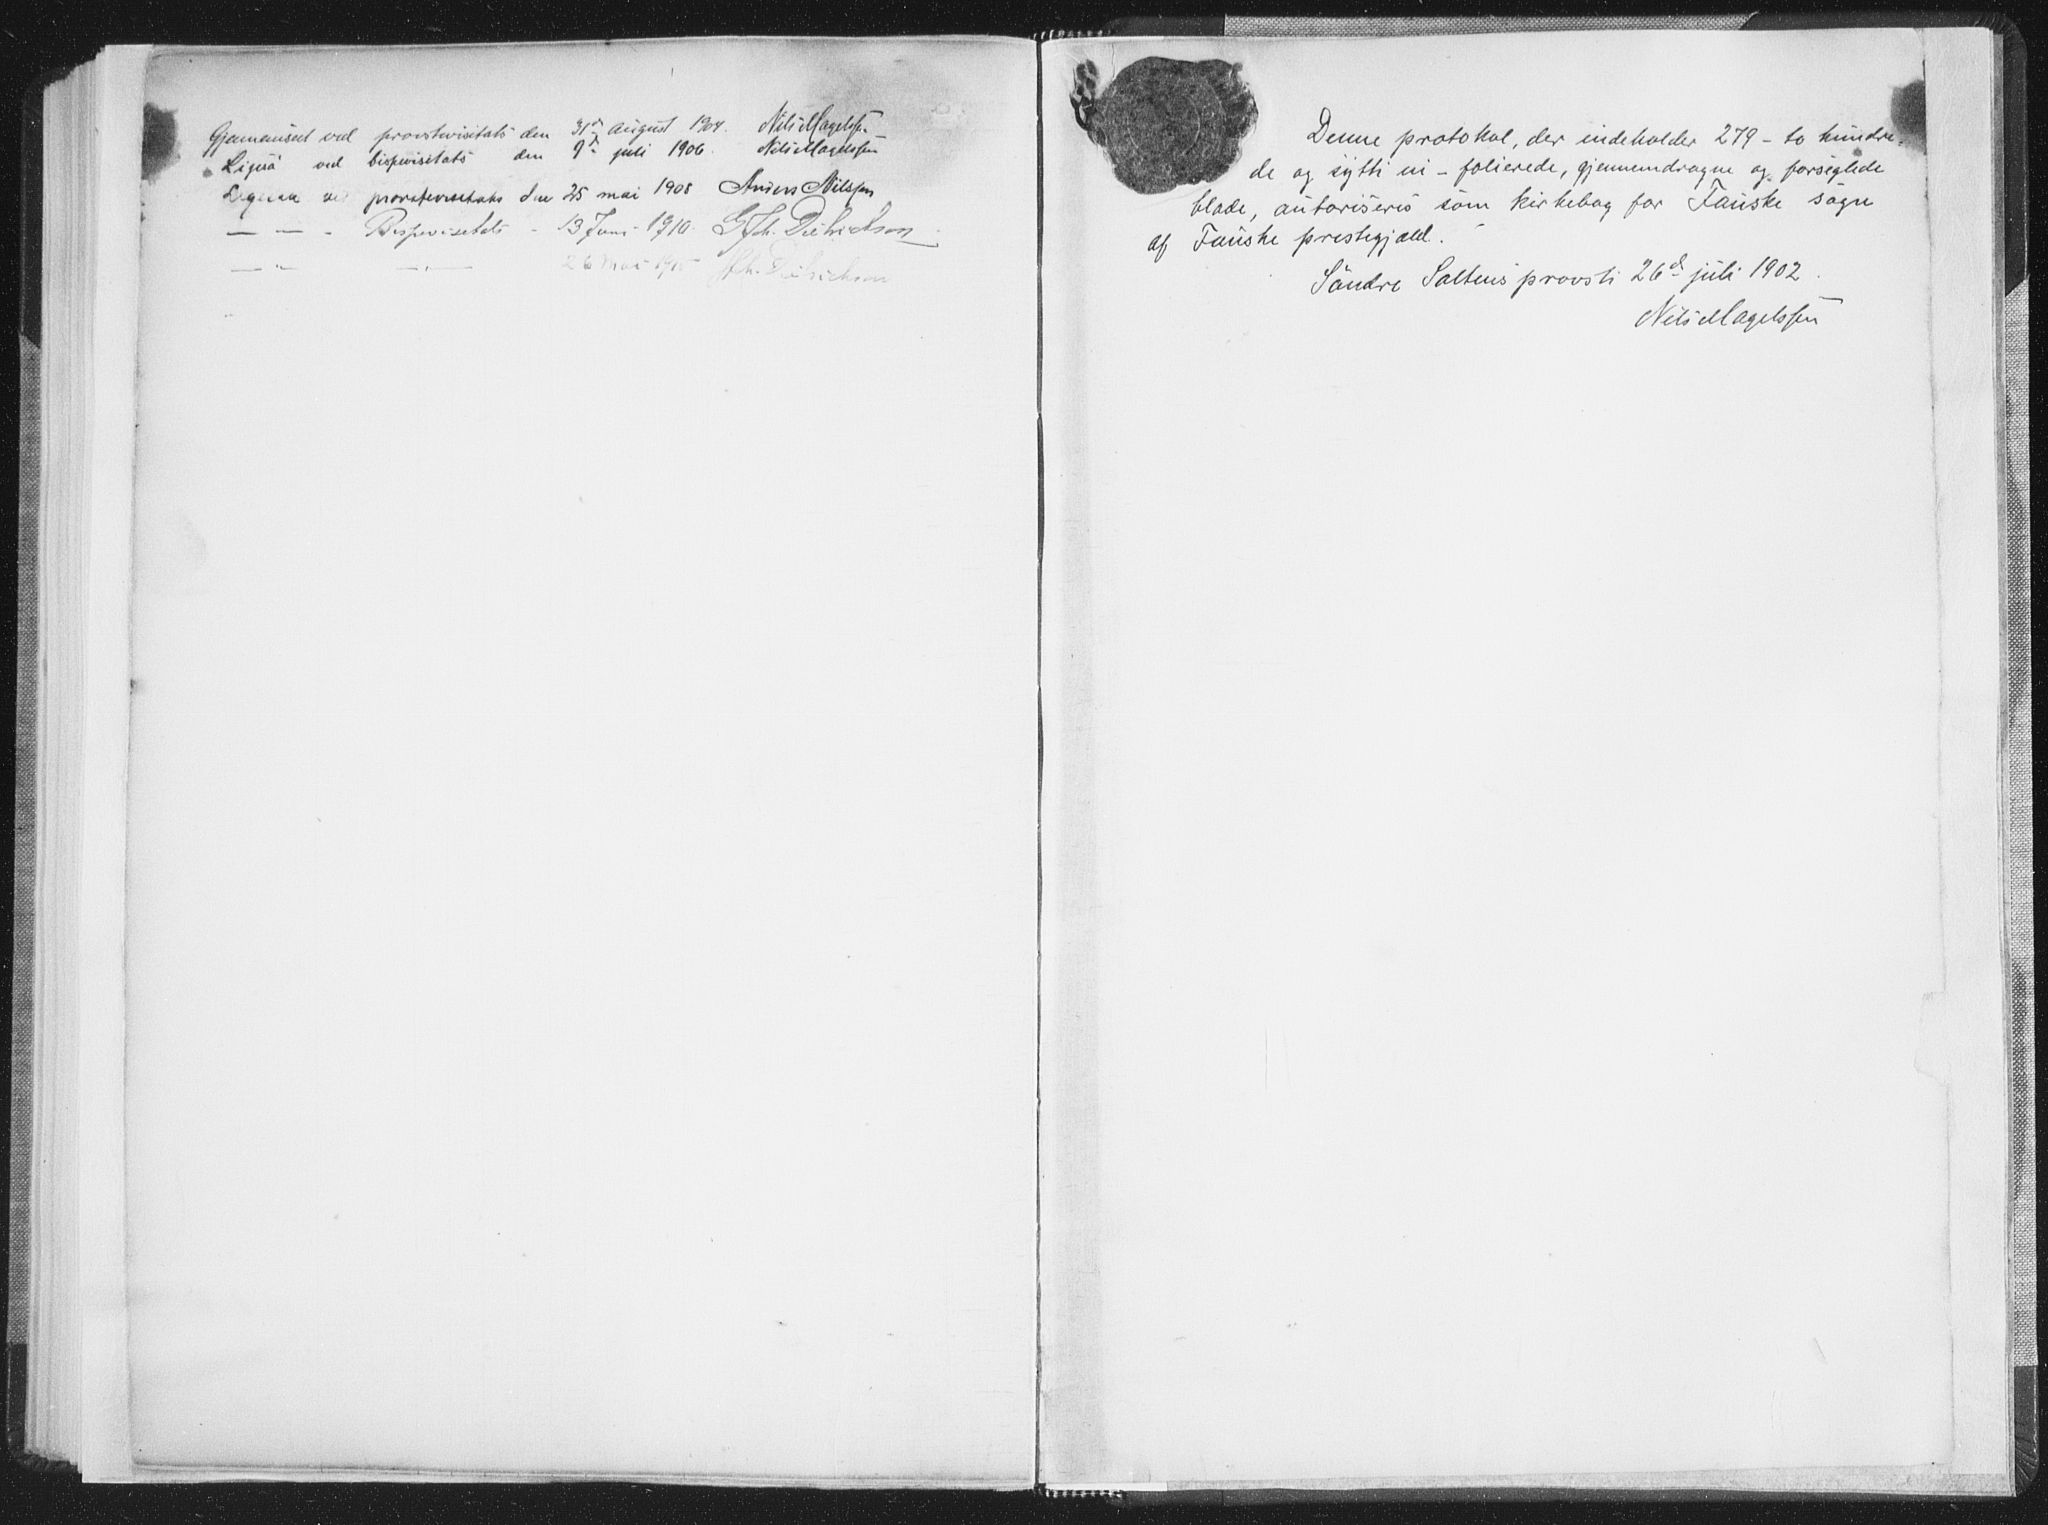 Gjennemseet ved provstevisitats den 31te august 1904. Nils Magelssen
Ligsaa ved bispevisitats den 9de juli 1906. Nils Magelssen
Ligesaa ved provstevisitats den 25 mai 1908 Anders Nilssen
— — - Bispevisitats - 13 Juni 1910. Joh. Didrichson
— " — — " — 26 Mai 191 Joh. Didrichson
Denne protokol, der indeholder 279 - to hundre-
de og sytti ni - folierede, gjennemdragne og forseglede
blade, autoriseres som kirkebog for Fauske sogn
af Fauske prestegjæld.
Söndre Saltens provsti 26de juli 1902.
Nils Magelssen